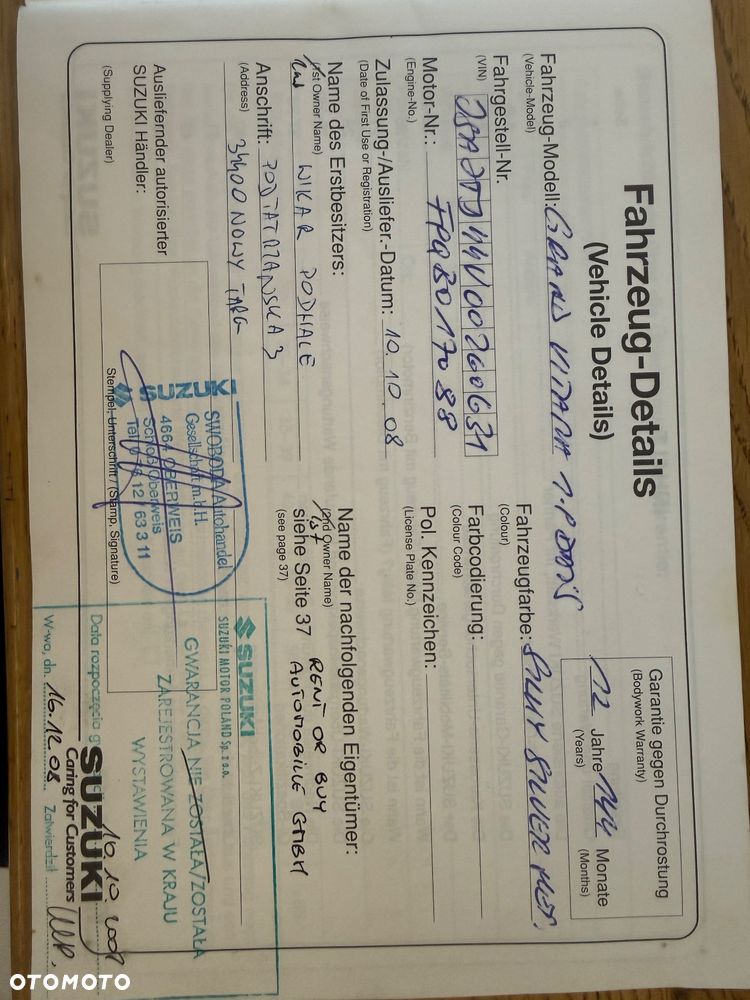 Fahrzeug-Details
(Vehicle Details)
Garantie gegen Durchrostung
(Bodywork Warranty)
12 Jahre 144 Monate
(Years) (Months)
Fahrzeug-Modell: GRAND VITARA
(Vehicle-Model)
Fahrzeugfarbe: SILKY SILVER MET.
(Colour)
Fahrgestell-Nr.
(VIN)
Farbcodierung:
(Colour Code)
Motor-Nr.:
(Engine-No.)
Pol. Kennzeichen:
(License Plate No.)
Zulassung-/Ausliefer.-Datum: 10. 10. 08
(Date of First Use or Registration)
Name des Erstbesitzers:
(1st Owner Name)
WIKAR PODHALE
Name der nachfolgenden Eigentümer:
(2nd Owner Name)
1st
siehe Seite 37
(see page 37)
RENT OR BUY
AUTOMOBILE GMBH
Anschrift: PODTATRZAŃSKA 3
(Address)
34400 NOWY TARG
Ausliefernder autorisierter
SUZUKI Händler:
(Supplying Dealer)
SUZUKI
SWOBODA Autohandel
Gesellschaft m.b.H.
4664 OBERWEIS
Schloß Oberweis
12 63 3 11
Stempel, Unterschrift / (Stamp, Signature)
SUZUKI
SUZUKI MOTOR POLAND Sp. z o.o.
GWARANCJA NIE ZOSTAŁA/ZOSTAŁA
ZAREJESTROWANA W KRAJU
WYSTAWIENIA
Data rozpoczęcia
W-wa, dn. 16.12.08 Zatwierdził
SUZUKI
Caring for Customers
OTOMOTO